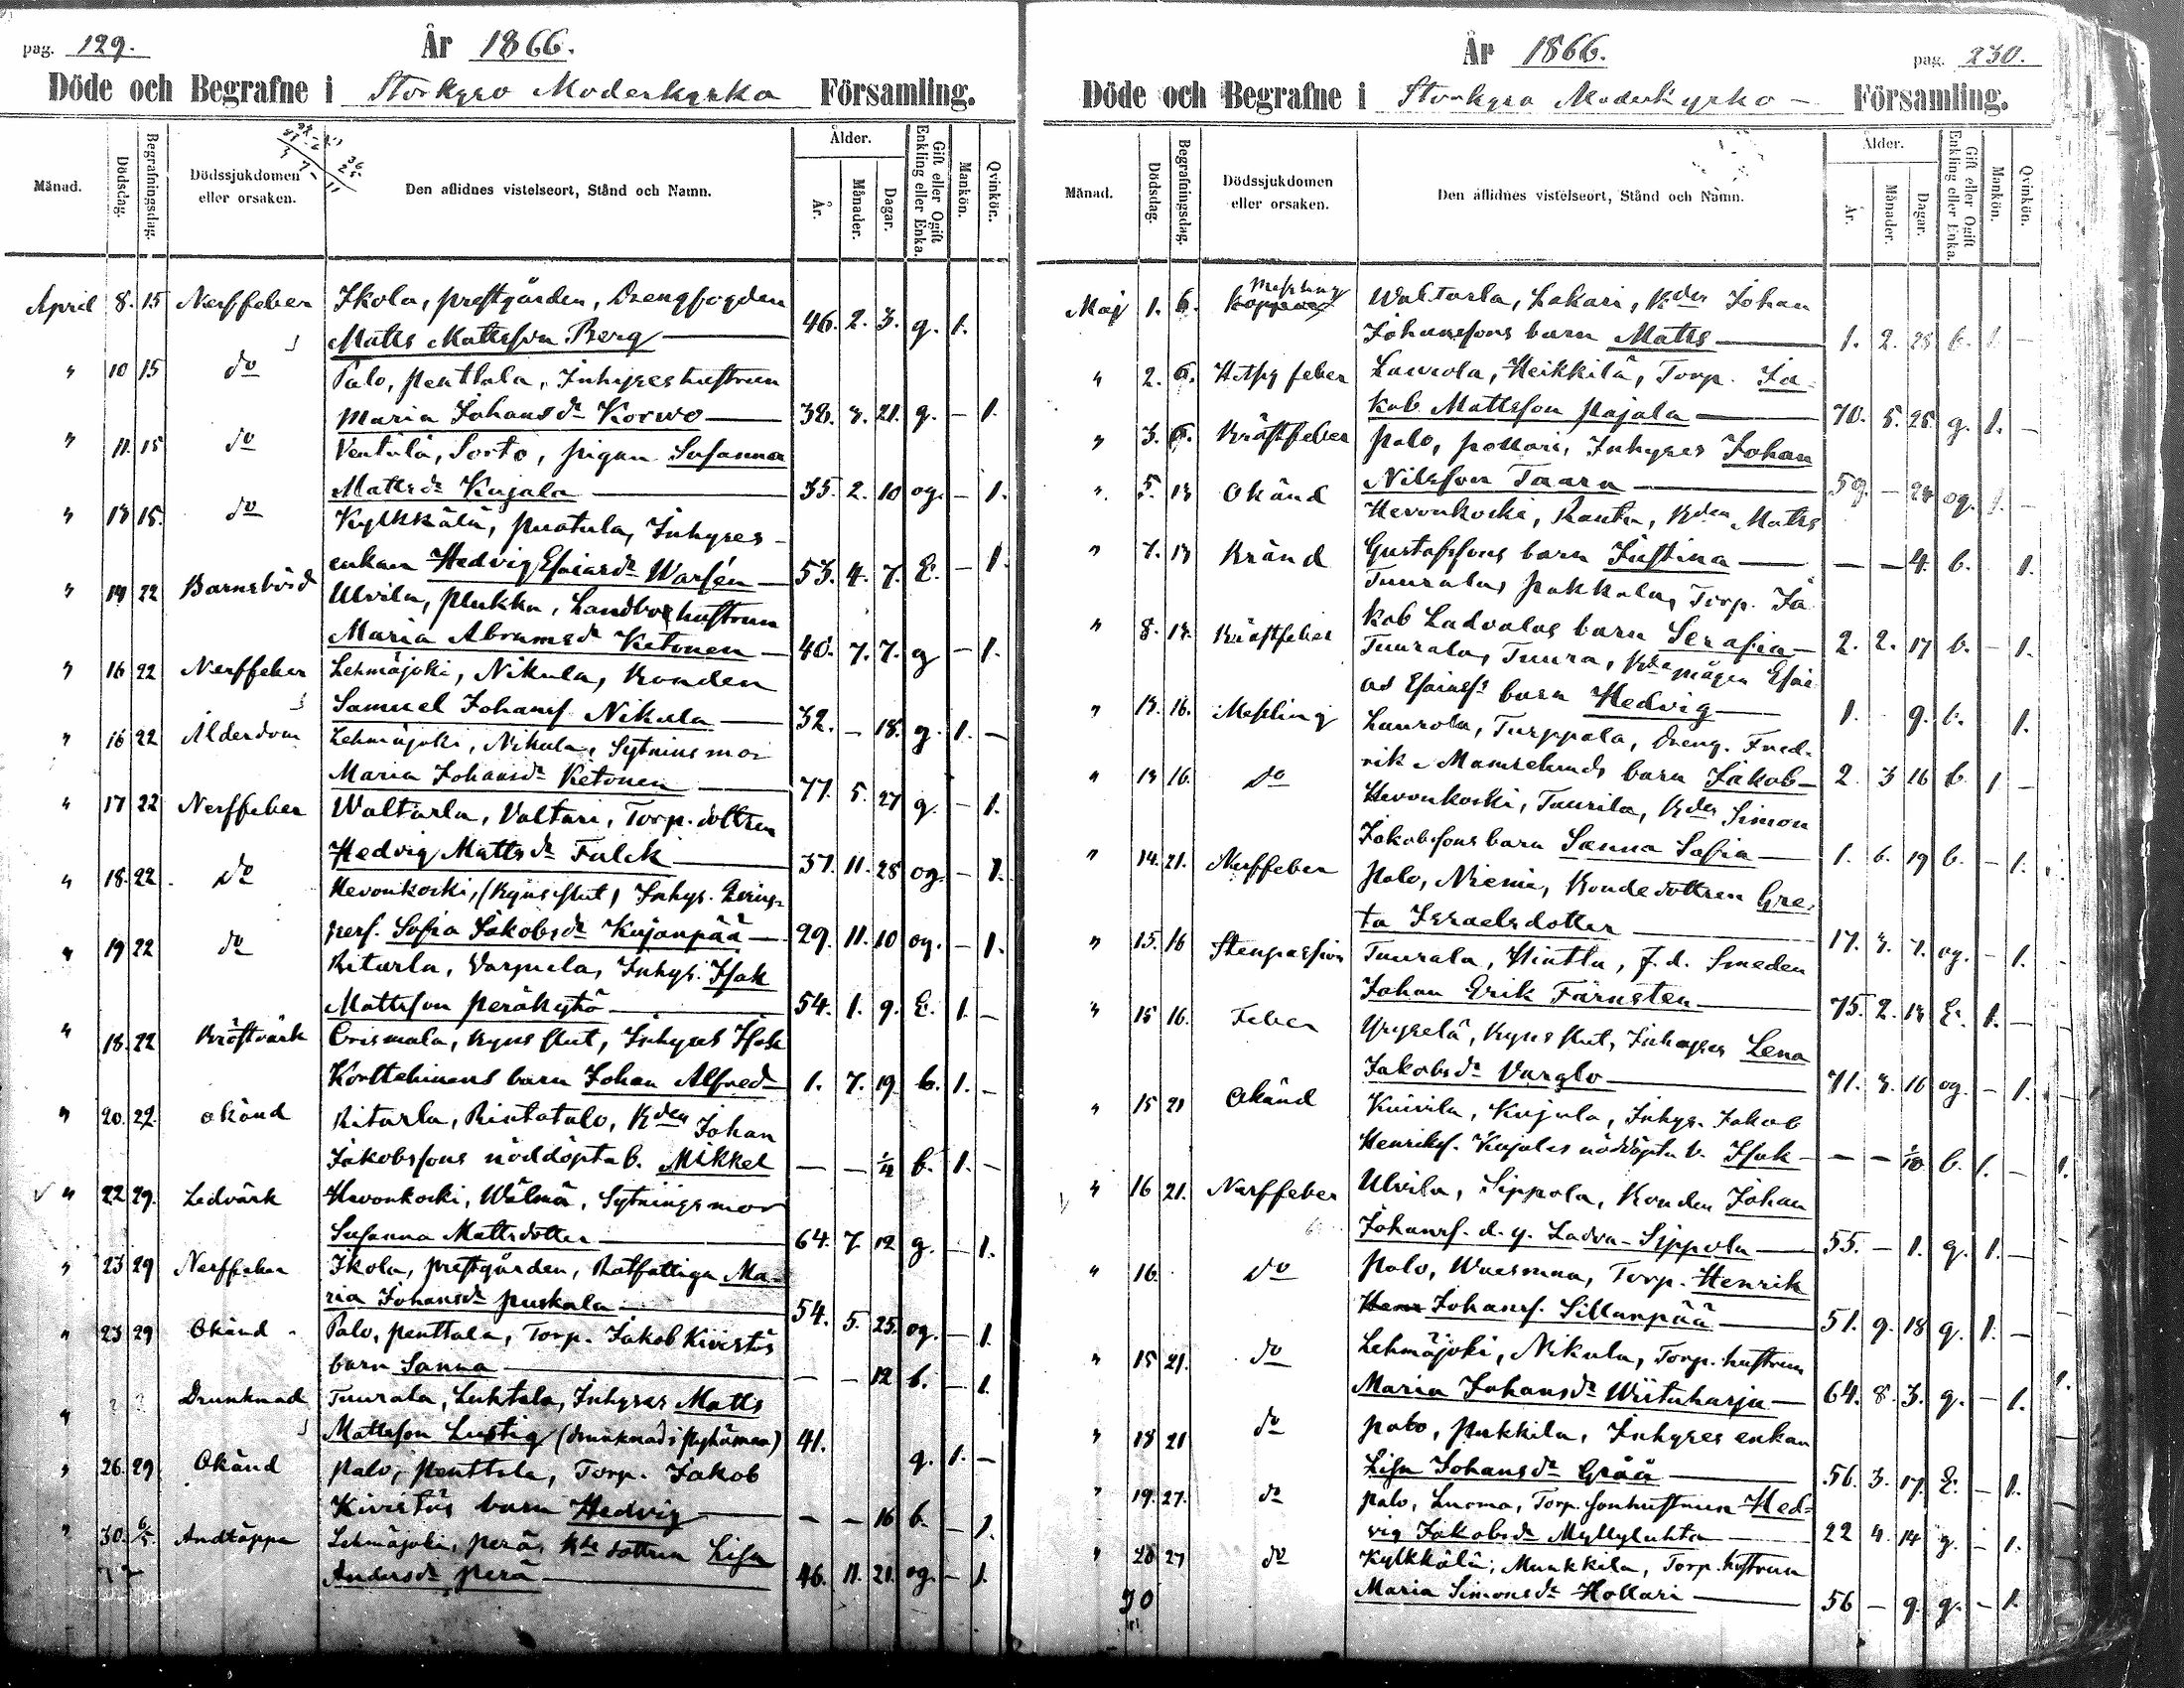 pag. 129.
År 1866.
Döde och Begrafne i Storkyro Moderkyrka Församling.
Månad. Dödsdag. Begrafningsdag. Dödssjukdomen eller orsaken. Den aflidnes vistelseort, Stånd och Namn. Ålder. År. Månader. Dagar. Gift eller Ogift Enkling eller Enka. Mankön. Qvinkön.
April 8. 15 Nerffeber Ikola, prestgården, Drengfogden
Matts Mattsson Berg 46. 2. 3. g. 1.
" 10 15 do Palo, penttala, Inhyseshustrun
Maria Johansdr Korwo 38. 3. 21. g. - 1.
" 11. 15 do Ventälä, Sorto, pigan Susanna
Mattsdr Kujala 35. 2. 10 og. - 1.
" 13 15. do Kylkkälä, puatula, Inhyses-
enkan Hedvig Esaiasdr Warsén 53. 4. 7. E. - 1.
" 14 22 Barnsbörd Ulvila, plukka, Landbohustrun
Maria Abramsdr Ketonen 40. 7. 7. g - 1.
" 16 22 Nerffeber Lehmäjoki, Nikula, Bonden
Samuel Johanss. Nikula 32. - 18. g. 1. -
" 16 22 Ålderdom Lehmäjoki, Nikula, Sytnins mor
Maria Johansdr Ketonen 77. 5. 27 g. - 1.
" 17 22 Nerffeber Waltarla, Valtari, Torp. dottren
Hedvig Mattsdr Falck 37. 11. 28 og. - 1.
" 18. 22 do Hevonkoski, (Kyns slut) Inhys.
pers. Sofia Jakobsdr Kujanpää 29. 11. 10 og. - 1.
" 19 22 do Ritarla, Varpula, Inhys. Isak
Mattsson peräkytö 54. 1. 9. E. 1. -
" 18. 22 Bröstvärk Orismala, Kyns slut, Inhyses Isak
Korttehinens barn Johan Alfred 1. 7. 19 b. 1. -
" 20. 22. okänd Ritarla, Rintatalo, Bden Johan
Jakobssons nöddöpta b. Mikkel - - 1/4 b. 1. -
" 22 29. Ledvärk Hevonkoski, Wälmä, Sytningsmor
Susanna Mattsdotter 64. 7. 12 g. - 1.
" 23 29 Nerffeber Ikola, prestgården, Rotfattiga Ma-
ria Johansdr puskala 54. 5. 25. og. - 1.
" 23 29 Okänd Palo, penttala, Torp. Jakob Kivistös
barn Sanna - - 12 b. - 1.
" ? ? Drunknad Tuurala, Luhtala, Inhyses Matts
Mattsson Lustig (drunknad i) 41. g. 1. -
" 26. 29 Okänd palo, penttala, Torp. Jakob
Kivistös barn Hedvig - - 16 b. - 1.
" 30. 6/5. Andtäppa Lehmäjoki, perä, Bde dottren Lisa
Andersdr perä 46. 11. 21. og. - 1.
År 1866.
pag. 230.
Döde och Begrafne i Storkyro Moderkyrko - Församling.
Månad. Dödsdag. Begrafningsdag. Dödssjukdomen eller orsaken. Den aflidnes vistelseort, Stånd och Namn. Ålder. År. Månader. Dagar. Gift eller Ogift Enkling eller Enka. Mankön. Qvinkön.
Maj 1. 6. Messling Waltarla, Lakari, Bden Johan
Johanssons barn Matts 1. 2. 28 b. 1. -
" 2. 6. Hetsig feber Laurola, Heikkilä, Torp. Ja-
kob Mattsson Pajala 70. 5. 25. g. 1. -
" 3. 6. Bröstfeber palo, pollari, Inhyses Johan
Nilsson Taara 59. - 24 og. 1. -
" 5. 13 Okänd Hevonkoski, Ranta, Bden Matts
Gustafssons barn Justina - - 4. b. 1.
" 7. 13 Bränd Tuurala, pakkala, Torp. Ja-
kob Ladvalas barn Serafia 2. 2. 17 b. - 1.
" 8. 13. Bröstfeber Tuurala, Tuura, Bde mågen Esai-
as Esaiass. barn Hedvig 1. 9. b. 1.
" 13. 16. Messling Laurola, Turppala, dreng. Fred-
rik Mannelunds barn Jakob 2. 3 16 b. 1 -
" 13 16. do Hevonkoski, Tuurila, Bden Simon
Jakobssons barn Sanna Sofia 1. 6. 19 b. - 1.
" 14. 21. Nerffeber Palo, Niemi, Bondedottren Gre-
ta Israelsdotter 17. 3. 7. og. - 1.
" 15. 16 Stenpassion Tuurala, Hintta, f.d. Smeden
Johan Erik Färnsten 75. 2. 13 E. 1. -
" 15 16. Feber Yrysselä, Kyns slut, Inhyses Lena
Jakobsdr Varglo 71. 3. 16 og - 1.
" 15 21 Okänd Kuivila, Kujala, Inhys. Jakob
Henrikss. Kujalas nöddöpta b. Isak - - 1/10 b. 1. -
" 16 21. Nerffeber Ulvila, Sippola, Bonden Johan
Johanss. d. y. Ladva-Sippola 55. - 1. g. 1. -
" 16. do Palo, Waismaa, Torp. Henrik
Johanss. Sillanpää 51. 9. 18 g. 1. -
" 15 21. do Lehmäjoki, Nikula, Torp. hustrun
Maria Johansdr Wiitaharju 64. 8. 3. g. - 1.
" 18 21 do palo, pukkila, Inhyses enkan
Lisa Johansdr Grää 56. 3. 17. E. - 1.
" 19. 27. do palo, Luoma, Torp. sonhustrun Hed-
vig Jakobsdr Myllyluhta 22 4. 14 g. - 1.
" 20 27 do Kylkkälä, Munkkila, Torp. hustrun
Maria Simonsdr Hollari 56 - 9. g. - 1.
20